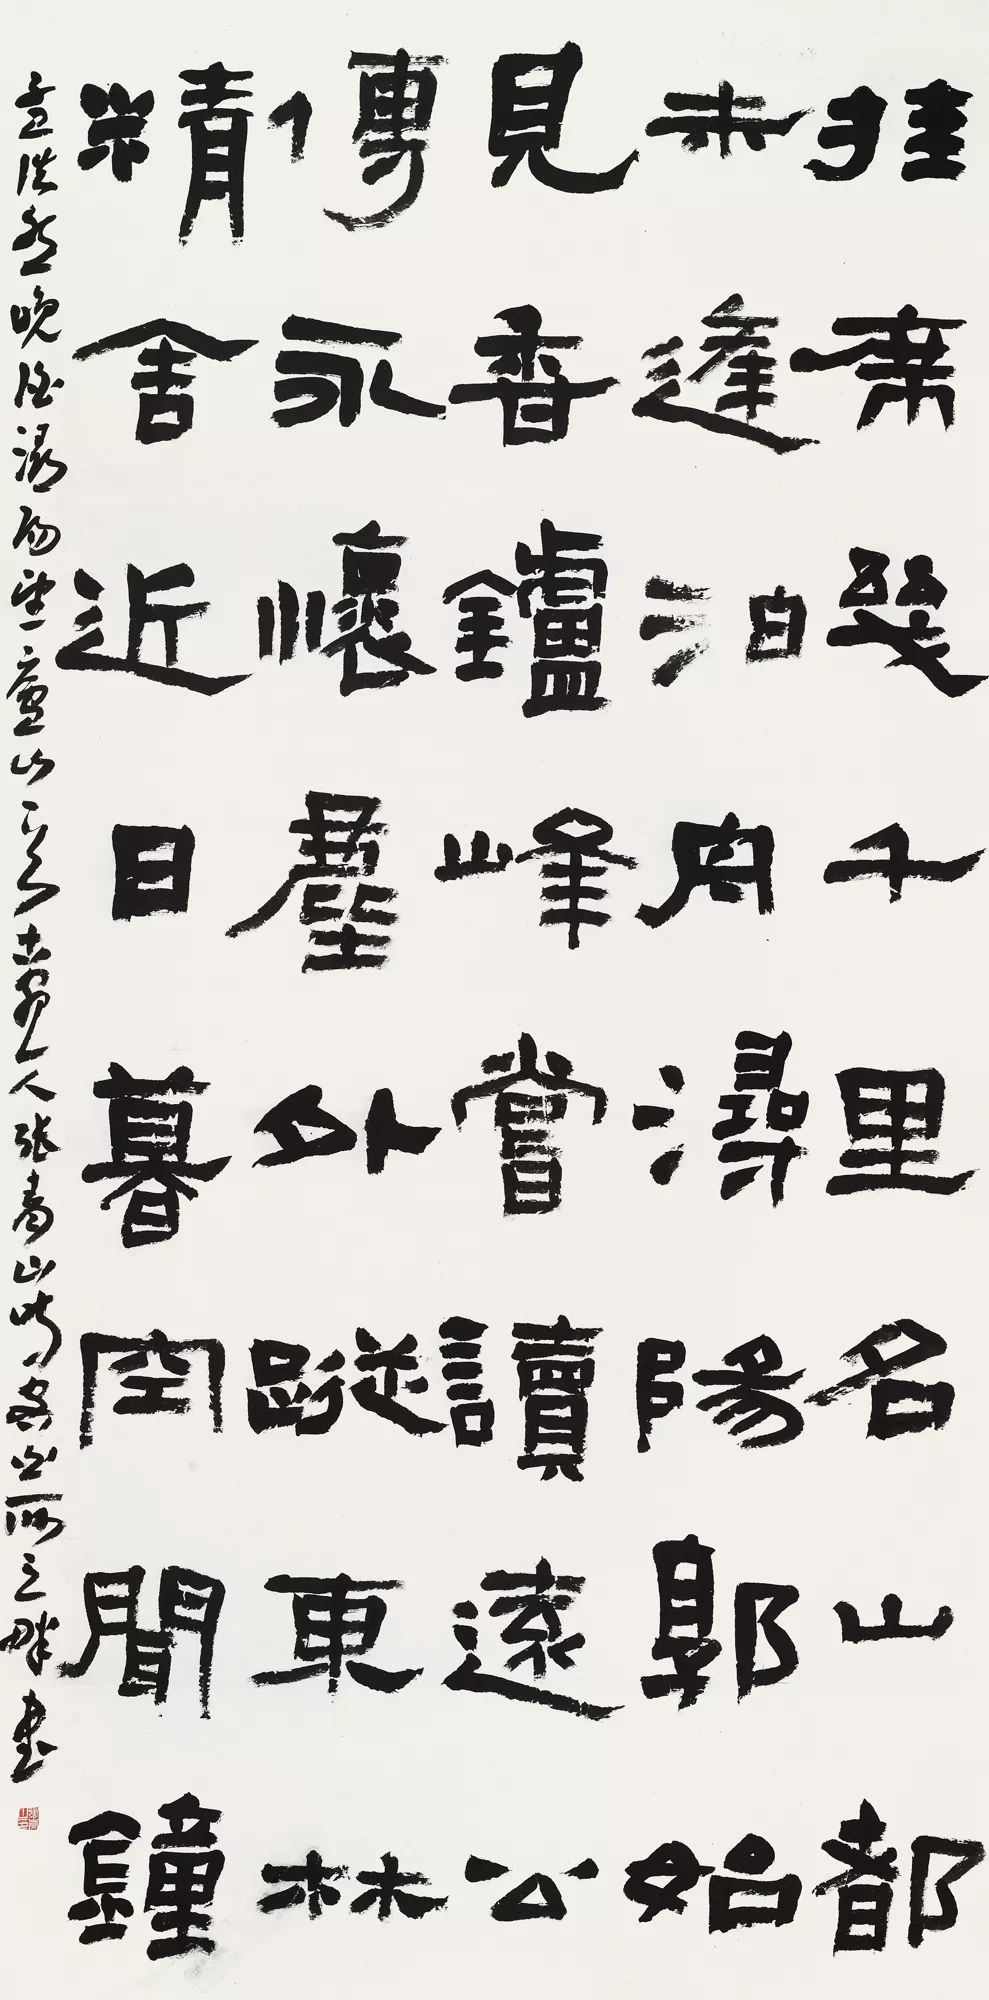 挂席幾千里名山都
未逢泊舟潯陽郭始
見香鑪峰嘗讀遠公
傳永懷塵外蹤東林
精舍近日暮空聞鐘
孟浩然晚泊潯陽望廬山一首 古冀人張青山時客西